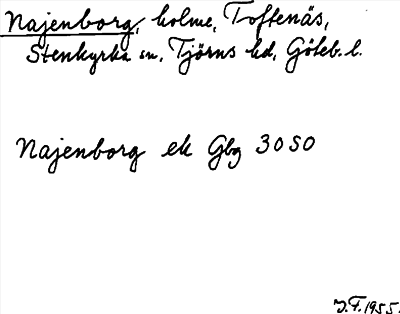 Najenborg, holme, Toftenäs,
Stenkyrka sn, Tjörns hd, Göteb. l.
Najenborg ek Gbg 30 SO
J.F. 1955.